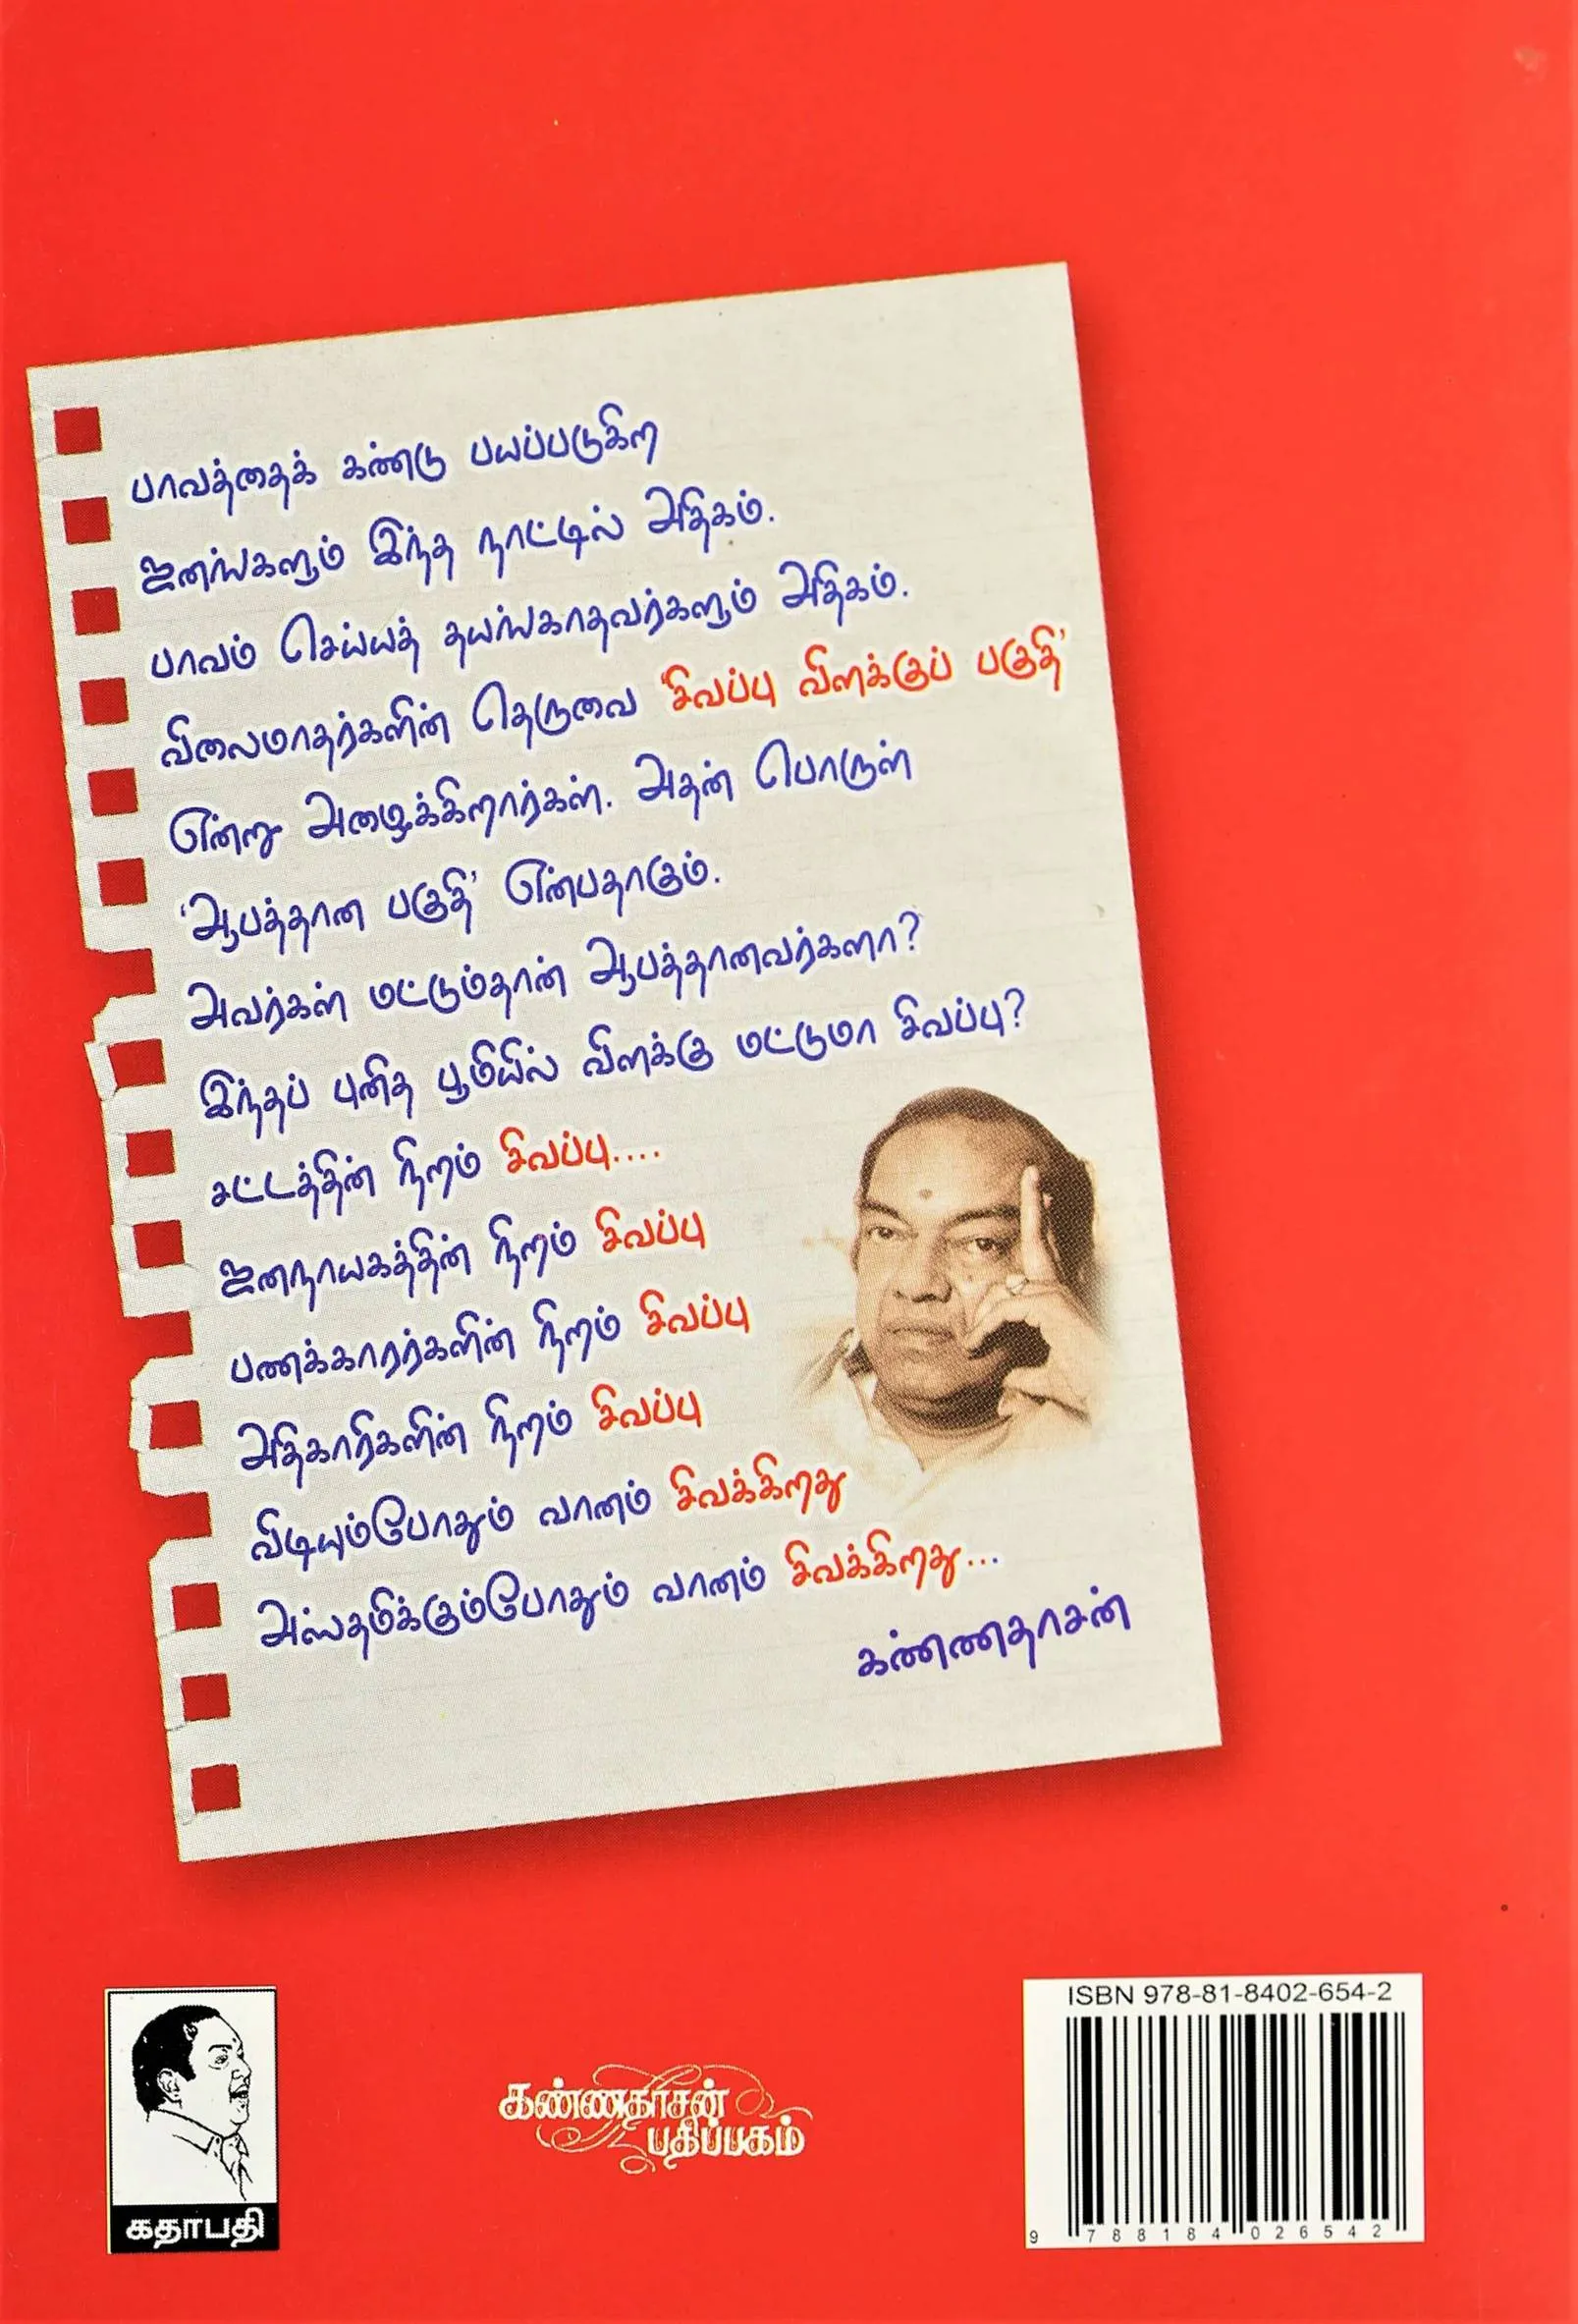 பாவத்தைக் கண்டு பயப்படுகிற
ஜனங்களும் இந்த நாட்டில் அதிகம்.
பாவம் செய்யத் தயங்காதவர்களும் அதிகம்.
விலைமாதர்களின் தெருவை 'சிவப்பு விளக்குப் பகுதி'
என்று அழைக்கிறார்கள். அதன் பொருள்
'ஆபத்தான பகுதி' என்பதாகும்.
அவர்கள் மட்டும்தான் ஆபத்தானவர்களா?
இந்தப் புனித பூமியில் விளக்கு மட்டுமா சிவப்பு?
சட்டத்தின் நிறம் சிவப்பு....
ஜனநாயகத்தின் நிறம் சிவப்பு
பணக்காரர்களின் நிறம் சிவப்பு
அதிகாரிகளின் நிறம் சிவப்பு
விடியும்போதும் வானம் சிவக்கிறது
அஸ்தமிக்கும்போதும் வானம் சிவக்கிறது...
கண்ணதாசன்
கதாபதி
கண்ணதாசன்
பதிப்பகம்
ISBN 978-81-8402-654-2
9 788184 026542